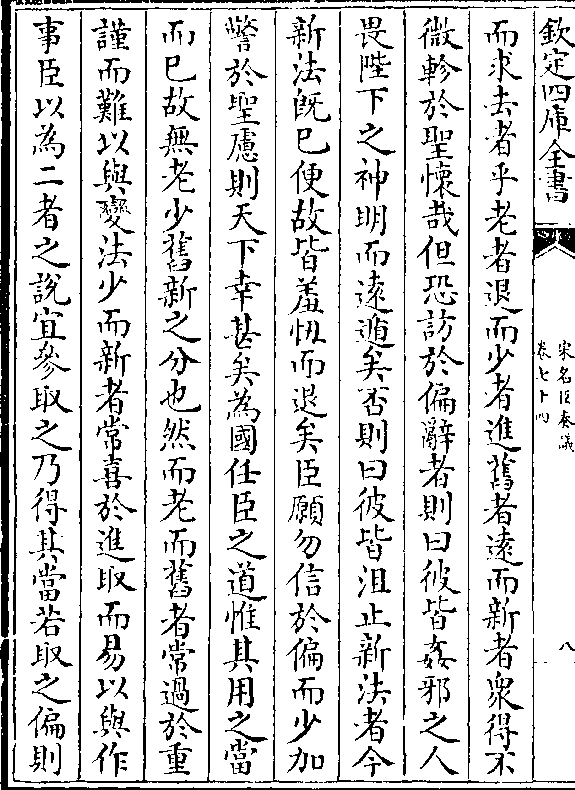 欽定四庫全書
宋名臣奏議
卷七十四
八
而求去者乎老者退而少者進舊者遠而新者衆得不
微軫於聖懷哉但恐訪於偏辭者則曰彼皆姦邪之人
畏陛下之神明而遠遁矣否則曰彼皆沮止新法者今
新法旣已便故皆羞忸而退矣臣願勿信於偏而少加
警於聖慮則天下幸甚矣為國任臣之道惟其用之當
而已故無老少舊新之分也然而老而舊者常過於重
謹而難以與變法少而新者常喜於進取而易以與作
事臣以為二者之説宜參取之乃得其當若取之偏則